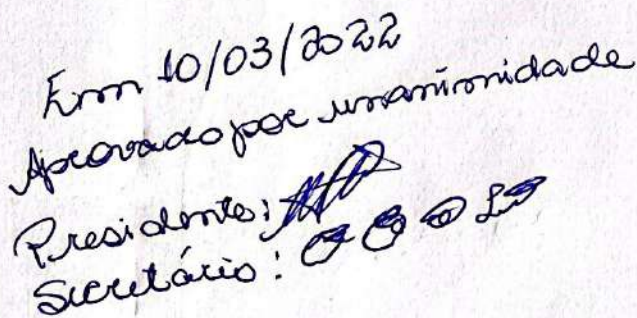 Em 10/03/2022
Aprovado por unanimidade
Presidente:
Secretário: